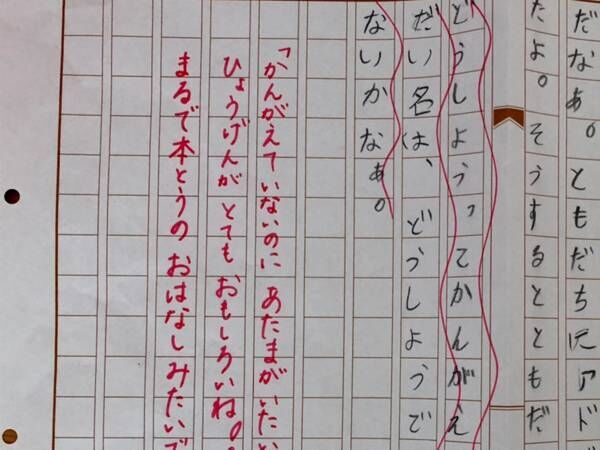 だなあ。ともだちにアド
たよ。そうするとともだ
どうしよう,ってかんがえ
だい名は、どうしようで
ないかなぁ。
「かんがえていないのに あたまがいたい
ひょうげんが とても おもしろいね。
まるで本とうの おはなしみたいで